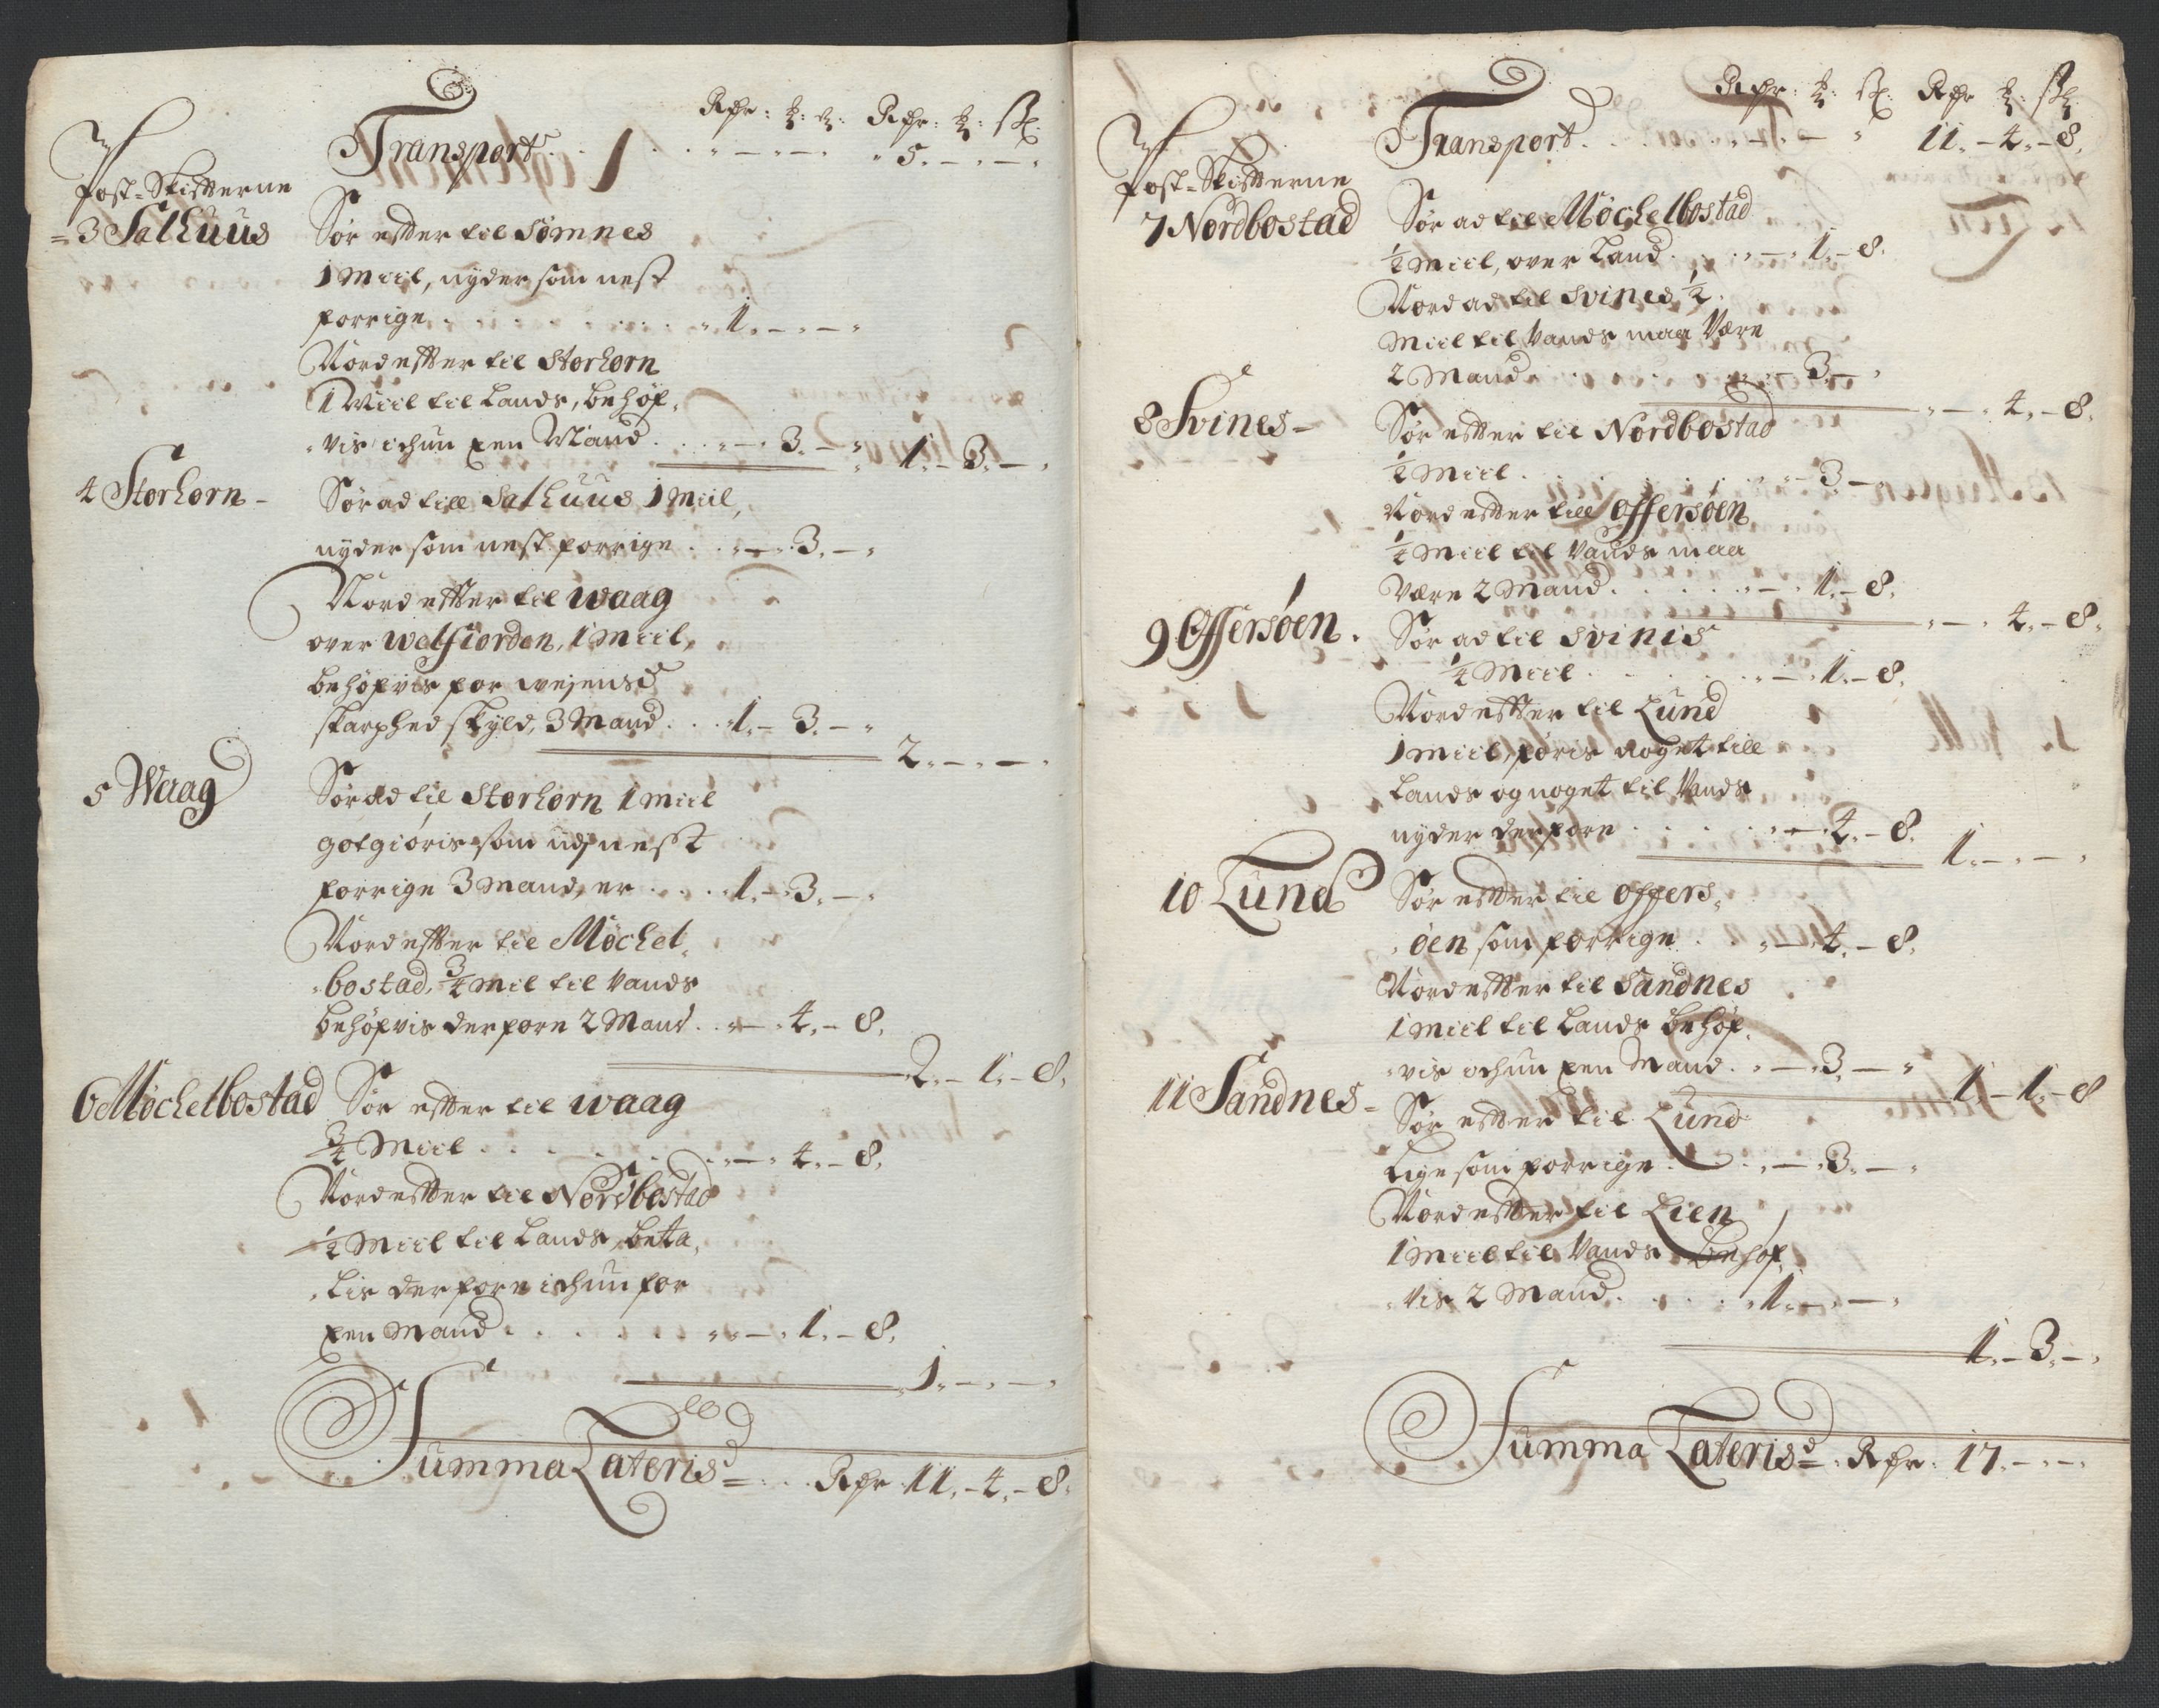 Rdr: ꝫ: ß: Rdr: ꝫ: ß:
Transport . . . „ — „ — „ „ 5. — „ — „
Post-Skifterne
3 Salhuus
Sør effter til Sømnes
1 Miil, nyder som nest
forrige . . . „ 1. — „ — „
Nord effter til Storhorn
1 Miil til Lands, behøf,
„vis ichun een Mand . . „ — „ 3. — „ 1. — 3. — „
4 Storhorn —
Sør ad till Salhuus 1 Miil,
nyder som nest forrige . . „ — „ 3. — „
Nord effter til Waag
over Welfiorden, 1 Miil,
behøfvis for wejens
skarphed skyld, 3 Mand . . „ 1. — 3. — „
2. — „ — „
5 Waag
Sør ad til Storhorn 1 Miil
gotgiøris som udj nest
forrige 3 Mand, er . . . „ 1. — 3. — „
Nord effter til Møchel„
„bostad, 3/4 Mil til Vands
behøfvis derfore 2 Mand . . „ — „ 4. — 8.
2. — 1. — 8.
6 Møchelbostad
Sør effter til Waag
3/4 Miil . . . . „ — „ 4. — 8.
Nord effter til Nordbostad
1/2 Miil til Lands, beta„
„lis derfore ichun for
een Mand . . . . „ — „ 1. — 8.
1. — „ — „
Summa Lateris = . . Rdr 11. — 4. — 8.
Rdr: ꝫ: ß: Rdr ꝫ: ß:
Transport . . . „ — „ — „ 11. — 4. — 8.
Post-Skifterne
7 Nordbostad
Sør ad til Møchelbostad
1/2 Miil, over Land . . „ — „ 1. — 8.
Nord ad til Svines 1/2
Miil til Vands maa Være
2 Mand . . . . „ — 3. — „
„ — „ 4. — 8.
8 Svines —
Sør effter til Nordbostad
1/2 Miil . . . . „ — 3. — „
Nord effter till Offersøen
1/4 Miil til Vands maa
Være 2 Mand . . . . „ — „ 1. — 8.
„ — „ 4. — 8.
9 Offersøen.
Sør ad til Svinis
1/4 Miil . . . . „ — „ 1. — 8.
Nord effter til Lund
1 Miil, føris noget till
Lands og noget til Vands
nyder derfore . . . . „ — „ 4. — 8.
1. — „ — „
10 Lund
Sør effter til Offers„
„øen som forrige . . . „ — „ 4. — 8.
Nord effter til Sandnes
1 Miil til Lands behøf„
„vis ichun een Mand . . „ — „ 3. — „
1. — 1. — 8
11 Sandnes —
Sør effter til Lund
Lige som forrige . . . „ — „ 3. — „
Nord effter til Lien
1 Miil til Vands behøf„
„vis 2 Mand . . . . „ 1. — „ — „
1. — 3. — „
Summa Lateris = . Rdr. 17. — „ — „